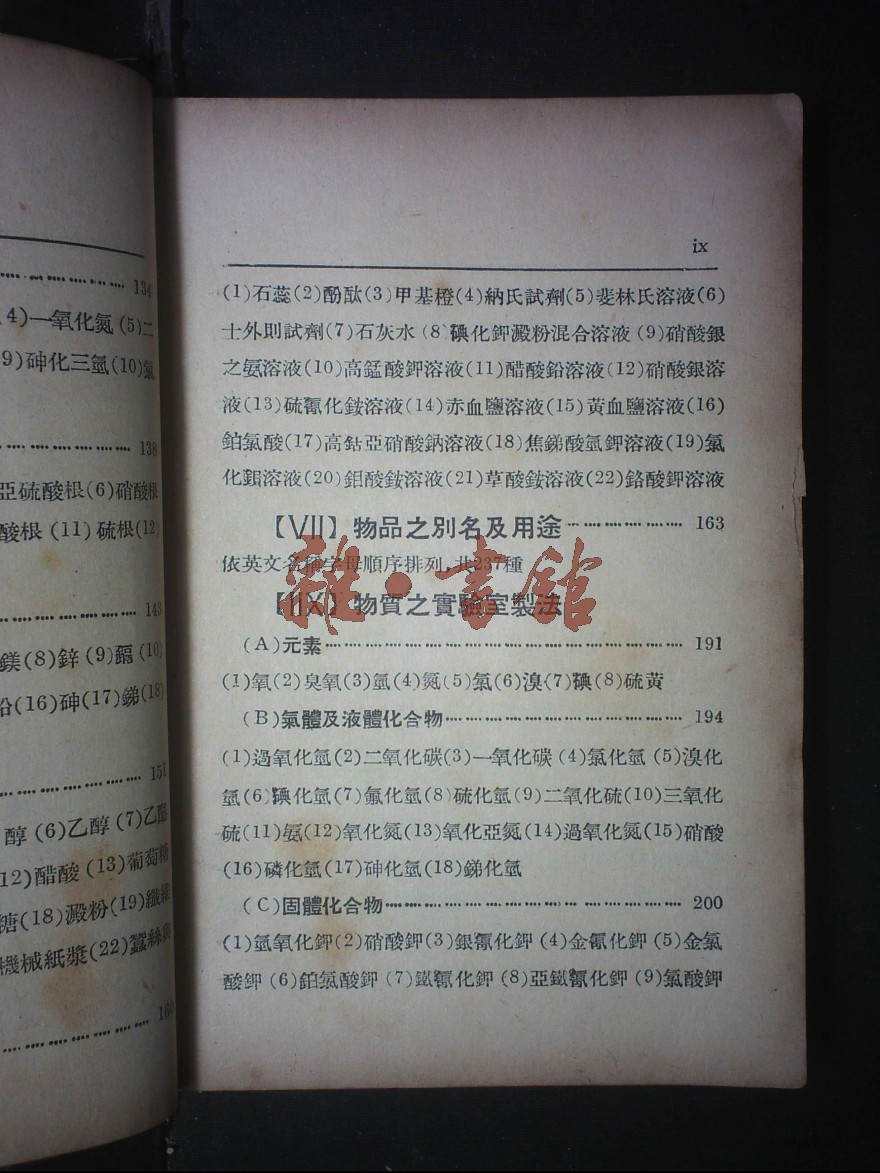 134
4)一氧化氮 (5)二
9)砷化三氫(10)氯
138
亞硫酸根(6)硝酸根
酸根 (11) 硫根(12)
143
鎂(8)鋅 (9)鎘 (10)
鉛(16)砷(17)銻(18)
151
醇 (6)乙醇 (7)乙醚
12)醋酸 (13)葡萄糖
糖(18)澱粉(19)纖維
機械紙漿(22)蠶絲
160
ix
(1)石蕊(2)酚酞(3)甲基橙(4)納氏試劑(5)斐林氏溶液(6)
士外則試劑(7)石灰水 (8 碘化鉀澱粉混合溶液 (9)硝酸銀
之氨溶液(10)高錳酸鉀溶液(11)醋酸鉛溶液(12)硝酸銀溶
液(13)硫氰化銨溶液(14)赤血鹽溶液(15)黃血鹽溶液(16)
鉑氯酸(17)高鈷亞硝酸鈉溶液(18)焦銻酸氫鉀溶液(19)氯
化鋇溶液(20)鉬酸銨溶液(21)草酸銨溶液(22)鉻酸鉀溶液
【VII】物品之別名及用途 163
依英文名稱字母順序排列,共237種
【IIX】物質之實驗室製法
雜·書館
(A)元素 191
(1)氧(2)臭氧(3)氫(4)氮(5)氯(6)溴(7)碘(8)硫黃
(B)氣體及液體化合物 194
(1)過氧化氫(2)二氧化碳(3)一氧化碳 (4)氯化氫 (5)溴化
氫(6)碘化氫(7)氟化氫(8)硫化氫(9)二氧化硫(10)三氧化
硫(11)氨(12)氧化氮(13)氧化亞氮(14)過氧化氮(15)硝酸
(16)磷化氫(17)砷化氫(18)銻化氫
(C)固體化合物 200
(1)氫氧化鉀(2)硝酸鉀(3)銀氰化鉀 (4)金氰化鉀 (5)金氯
酸鉀 (6)鉑氯酸鉀 (7)鐵氰化鉀 (8)亞鐵氰化鉀 (9)氯酸鉀